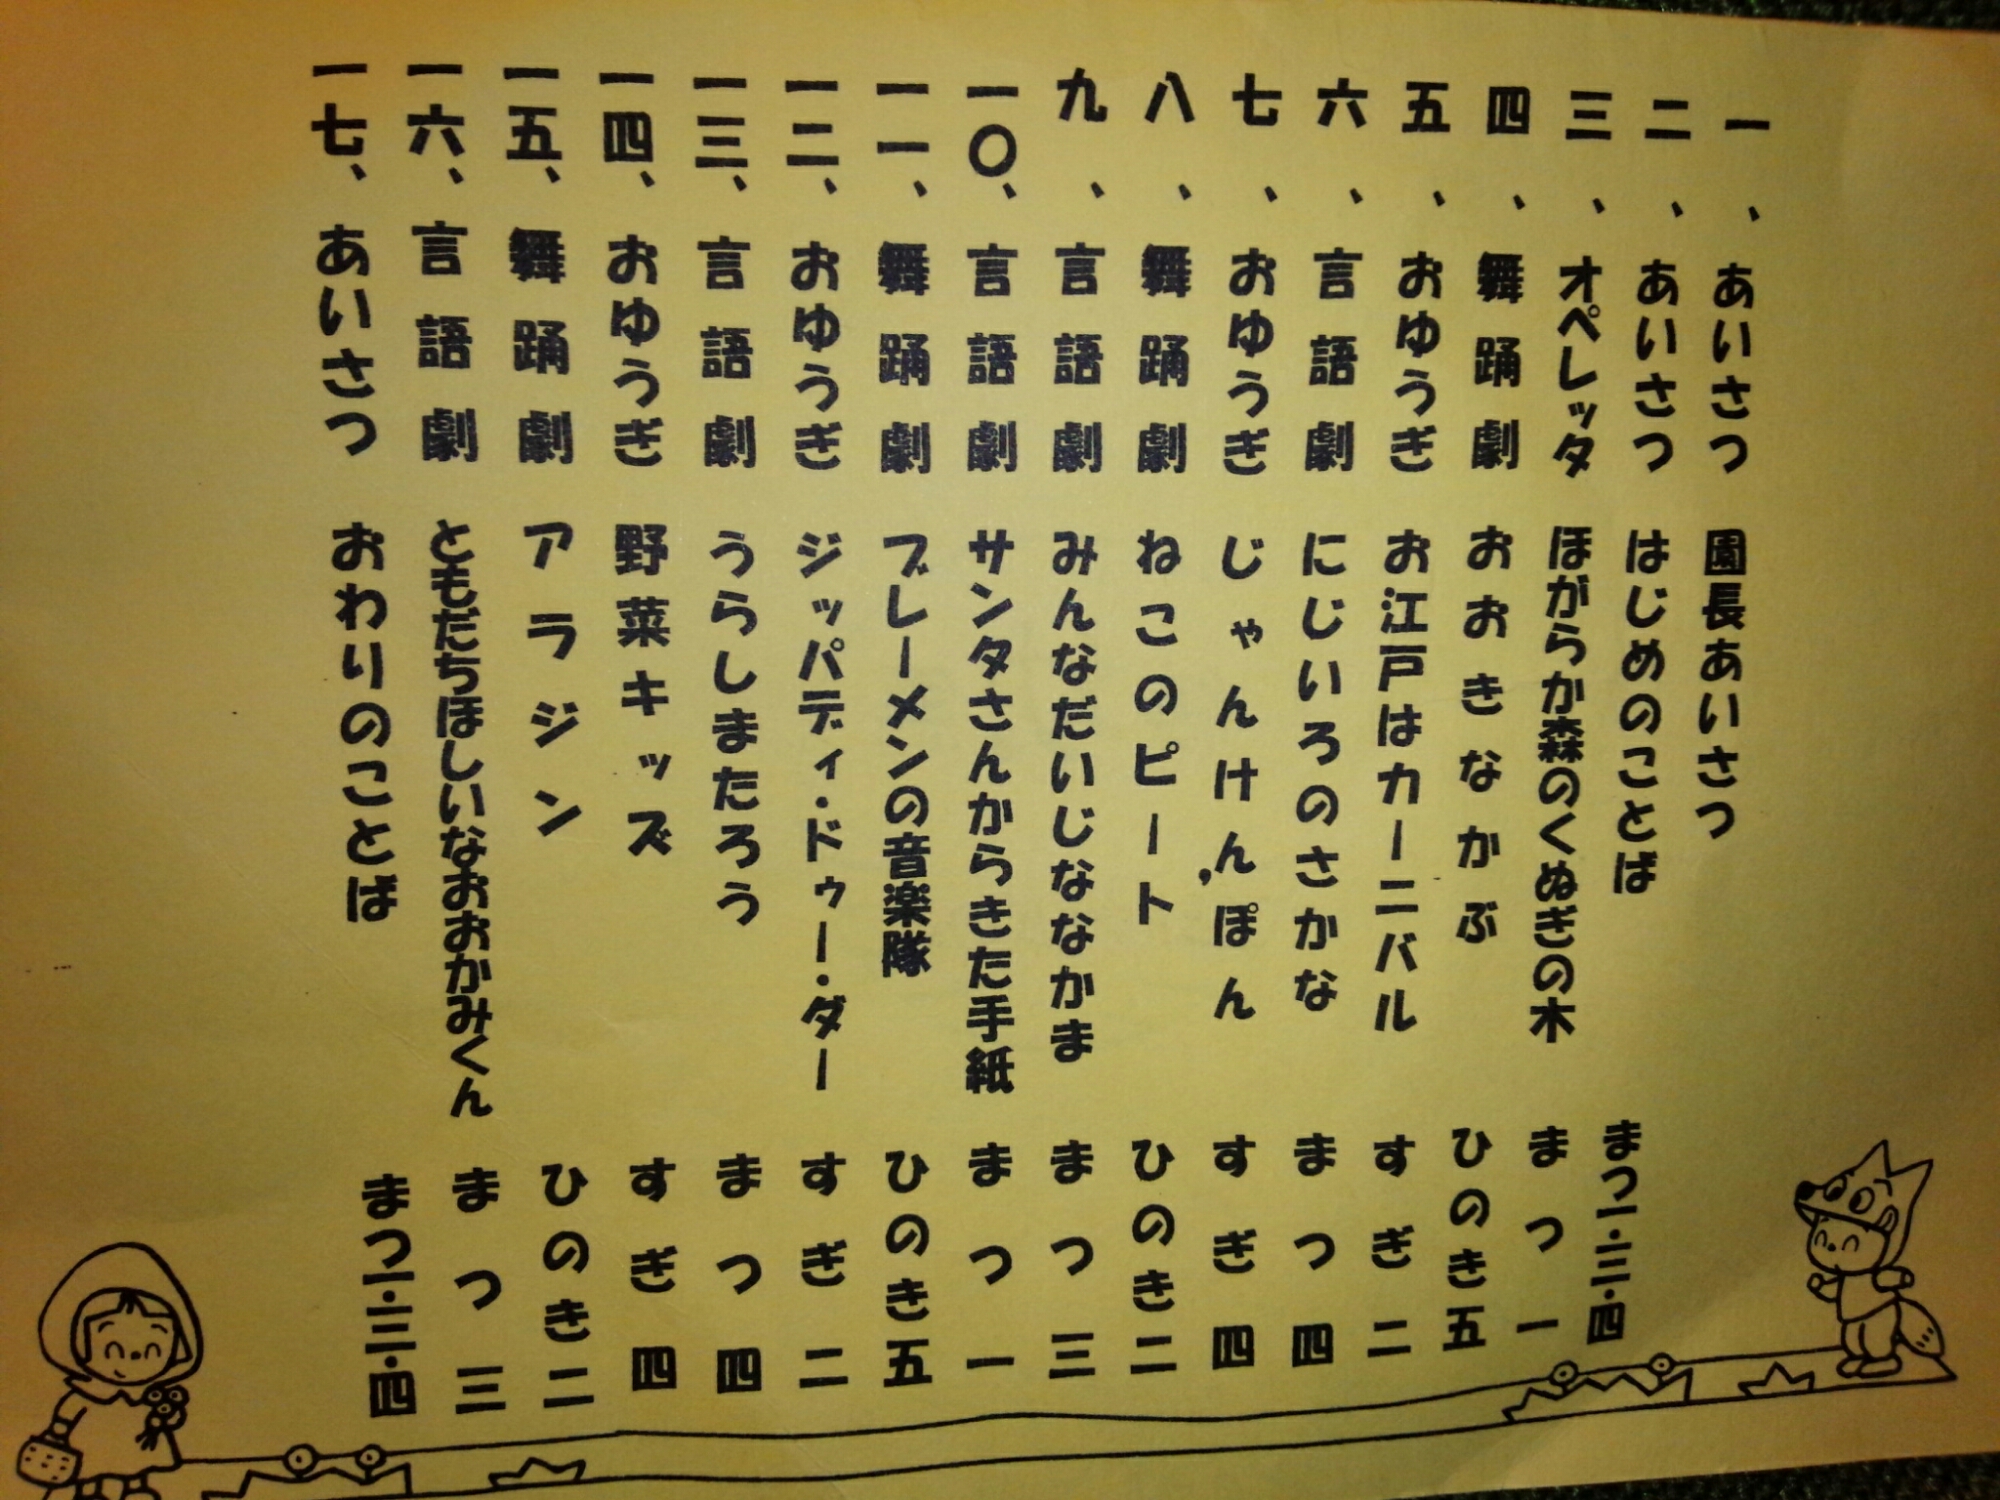 一、あいさつ 園長あいさつ
二、あいさつ はじめのことば まつ一・三・四
三、オペレッタ ほがらか森のくぬぎの木 まつ一
四、舞踊劇 おおきなかぶ ひのき五
五、おゆうぎ お江戸はカーニバル すぎ二
六、言語劇 にじいろのさかな まつ四
七、おゆうぎ じゃんけんぽん すぎ四
八、舞踊劇 ねこのピート ひのき二
九、言語劇 みんなだいじななかま まつ三
一〇、言語劇 サンタさんからきた手紙 まつ一
一一、舞踊劇 ブレーメンの音楽隊 ひのき五
一二、おゆうぎ ジッパディ・ドゥー・ダー すぎ二
一三、言語劇 うらしまたろう まつ四
一四、おゆうぎ 野菜キッズ すぎ四
一五、舞踊劇 アラジン ひのき二
一六、言語劇 ともだちほしいなおおかみくん まつ三
一七、あいさつ おわりのことば まつ一・三・四